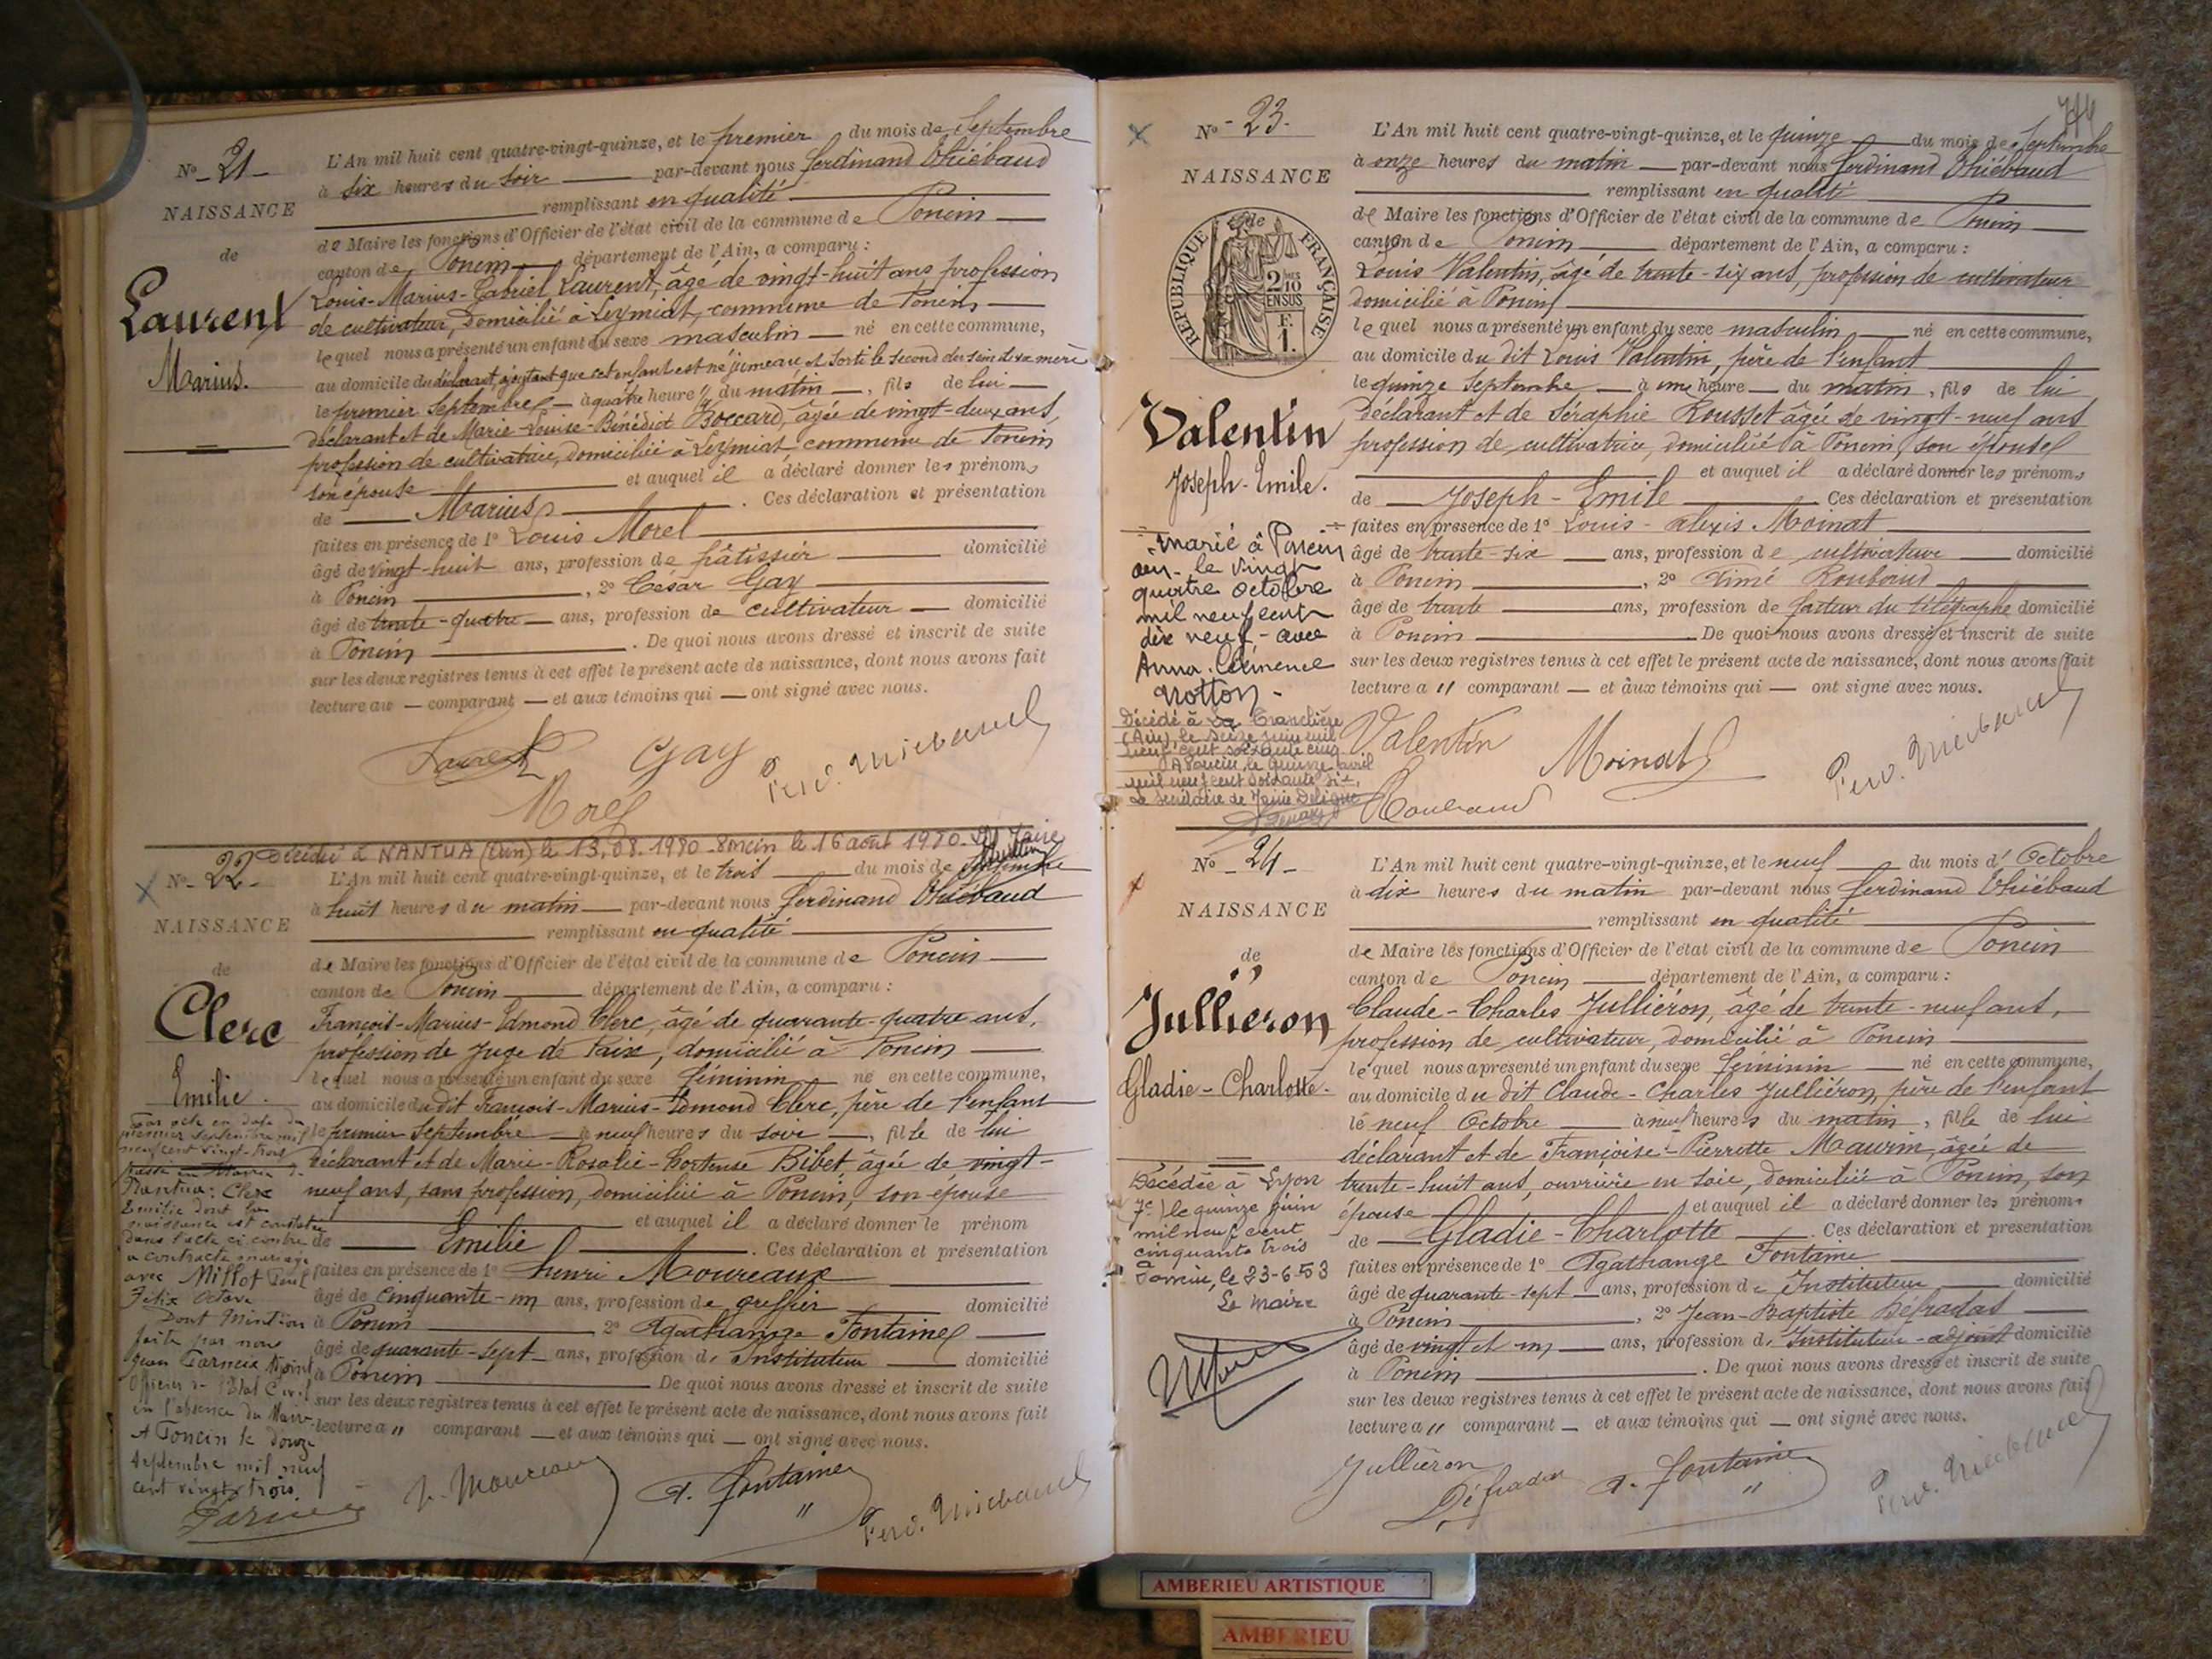 N° - 21 -
NAISSANCE
de
Laurent
Marius.
L'An mil huit cent quatre-vingt-quinze, et le premier du mois de Septembre
à six heures du soir par-devant nous Ferdinand Thiébaud
remplissant en qualité
de Maire les fonctions d'Officier de l'état civil de la commune de Poncin
canton de Poncin département de l'Ain, a comparu :
Louis-Marius-Gabriel Laurent, âgé de vingt-huit ans profession
de cultivateur, domicilié à Leymiat, commune de Poncin
lequel nous a présenté un enfant du sexe masculin né en cette commune,
au domicile du déclarant, ajoutant que cet enfant est né jumeau et sorti le second du sein de sa mère
le premier Septembre à quatre heure du matin, fils de lui
déclarant et de Marie-Louise-Bénédict Boccard, âgée de vingt-deux ans,
profession de cultivatrice, domiciliée à Leymiat commune de Poncin
son épouse et auquel il a déclaré donner les prénoms
de Marius. Ces déclaration et présentation
faites en présence de 1° Louis Morel
âgé de vingt-huit ans, profession de pâtissier domicilié
à Poncin, 2° César Gay
âgé de trente-quatre ans, profession de cultivateur domicilié
à Poncin. De quoi nous avons dressé et inscrit de suite
sur les deux registres tenus à cet effet le présent acte de naissance, dont nous avons fait
lecture au comparant et aux témoins qui ont signé avec nous.
Laurent Gay Ferd. Thiébaud
Morel
Décédée à NANTUA (Ain) le 13.08.1980 - Poncin le 16 août 1980. Le Maire
N° - 22 -
NAISSANCE
de
Clerc
Emilie.
Par acte en date du
premier septembre mil
neuf cent vingt-trois
passé en Mairie de
Nantua : Clerc
Emilie dont la
naissance est constatée
dans l'acte ci contre
a contracté mariage
avec Millot Paul
Félix Octave
Dont Mention
faite par nous
Jean Adjoint
Officier de l'Etat Civil
en l'absence du Maire
A Poncin le douze
septembre mil neuf
cent vingt trois.
L'An mil huit cent quatre-vingt-quinze, et le trois du mois de Septembre
à huit heures du matin par-devant nous Ferdinand Thiébaud
remplissant en qualité
de Maire les fonctions d'Officier de l'état civil de la commune de Poncin
canton de Poncin département de l'Ain, a comparu :
François-Marius-Edmond Clerc, âgé de quarante-quatre ans,
profession de Juge de Paix, domicilié à Poncin
lequel nous a présenté un enfant du sexe féminin né en cette commune,
au domicile du dit François-Marius-Edmond Clerc, père de l'enfant
le premier Septembre à neuf heures du soir, fille de lui
déclarant et de Marie-Rosalie-Hortense Bibet, âgée de vingt-
neuf ans, sans profession, domiciliée à Poncin, son épouse
et auquel il a déclaré donner le prénom
de Emilie. Ces déclaration et présentation
faites en présence de 1° Henri Moureaux
âgé de cinquante-un ans, profession de greffier domicilié
à Poncin 2° Agathange Fontaine
âgé de quarante-sept ans, profession d'Instituteur domicilié
à Poncin De quoi nous avons dressé et inscrit de suite
sur les deux registres tenus à cet effet le présent acte de naissance, dont nous avons fait
lecture a " comparant et aux témoins qui ont signé avec nous.
h. Moureaux A. Fontaine Ferd. Thiébaud
N° - 23.
NAISSANCE
de
RÉPUBLIQUE FRANÇAISE
2/10 EN SUS
F. 1.
Valentin
Joseph-Emile.
marié à Poncin
Ain - le vingt
quatre octobre
mil neuf cent
dix neuf - avec
Anna Clémence
Notton -
Décédé à La Tranclière
(Ain) le seize juin mil
neuf cent soixante cinq
A Poncin, le quinze avril
mil neuf cent soixante six.
Le Secrétaire de Mairie
L'An mil huit cent quatre-vingt-quinze, et le quinze du mois de Septembre
à onze heures du matin par-devant nous Ferdinand Thiébaud
remplissant en qualité
de Maire les fonctions d'Officier de l'état civil de la commune de Poncin
canton de Poncin département de l'Ain, a comparu :
Louis Valentin, âgé de trente-six ans, profession de cultivateur
domicilié à Poncin
lequel nous a présenté un enfant du sexe masculin né en cette commune,
au domicile du dit Louis Valentin, père de l'enfant
le quinze Septembre à une heure du matin, fils de lui
déclarant et de Séraphie Rousset âgée de vingt-neuf ans
profession de cultivatrice, domiciliée à Poncin, son épouse
et auquel il a déclaré donner les prénoms
de Joseph-Emile Ces déclaration et présentation
faites en présence de 1° Louis-Alexis Moinat
âgé de trente-six ans, profession de cultivateur domicilié
à Poncin, 2° Aimé Roubaud
âgé de trente ans, profession de facteur du télégraphe domicilié
à Poncin De quoi nous avons dressé et inscrit de suite
sur les deux registres tenus à cet effet le présent acte de naissance, dont nous avons fait
lecture a " comparant et aux témoins qui ont signé avec nous.
Valentin Moinat Ferd. Thiébaud
Roubaud
N° - 24 -
NAISSANCE
de
Julliéron
Gladie-Charlotte.
Décédée à Lyon
7e) le quinze juin
mil neuf cent
cinquante trois
Poncin, le 23-6-53
Le maire
L'An mil huit cent quatre-vingt-quinze, et le neuf du mois d'Octobre
à dix heures du matin par-devant nous Ferdinand Thiébaud
remplissant en qualité
de Maire les fonctions d'Officier de l'état civil de la commune de Poncin
canton de Poncin département de l'Ain, a comparu :
Claude-Charles Julliéron, âgé de trente-neuf ans,
profession de cultivateur, domicilié à Poncin
lequel nous a présenté un enfant du sexe féminin né en cette commune,
au domicile du dit Claude-Charles Julliéron, père de l'enfant
le neuf Octobre à neuf heures du matin, fille de lui
déclarant et de Françoise-Pierrette Maurin, âgée de
trente-huit ans, ouvrière en soie, domiciliée à Poncin, son
épouse et auquel il a déclaré donner les prénoms
de Gladie-Charlotte. Ces déclaration et présentation
faites en présence de 1° Agathange Fontaine
âgé de quarante-sept ans, profession d'Instituteur domicilié
à Poncin, 2° Jean-Baptiste Défradas
âgé de vingt et un ans, profession d'Instituteur-adjoint domicilié
à Poncin. De quoi nous avons dressé et inscrit de suite
sur les deux registres tenus à cet effet le présent acte de naissance, dont nous avons fait
lecture a " comparant et aux témoins qui ont signé avec nous.
Julliéron Défradas A. Fontaine Ferd. Thiébaud
AMBERIEU ARTISTIQUE
AMBERIEU